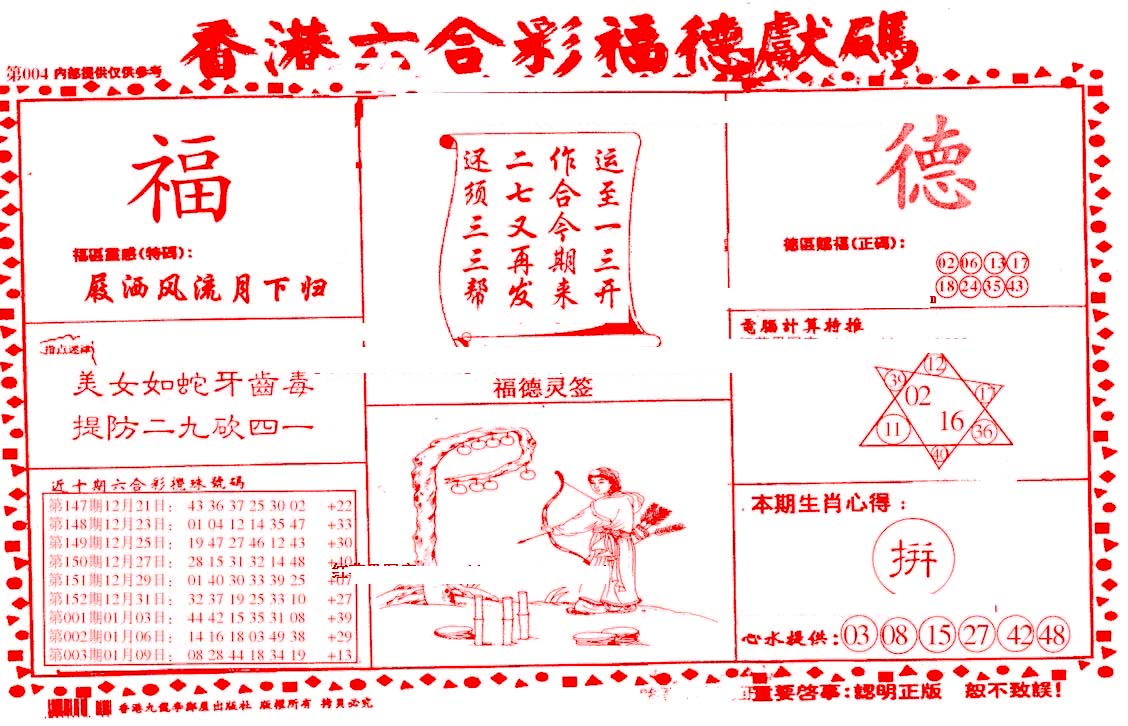 香港六合彩福德獻碼
第004 内部提供仅供参考
福
福區靈感(特碼):
屐洒风流月下归
美女如蛇牙齒毒
提防二九砍四一
近十期六合彩攪珠號碼
第147期12月21日: 43 36 37 25 30 02 +22
第148期12月23日: 01 04 12 14 35 47 +33
第149期12月25日: 19 47 27 46 12 43 +30
第150期12月27日: 28 15 31 32 14 48
第151期12月29日: 01 40 30 33 39 25
第152期12月31日: 32 37 19 25 33 10 +27
第001期01月03日: 44 42 15 35 31 08 +39
第002期01月06日: 14 16 18 03 49 38 +29
第003期01月09日: 08 28 44 18 34 19 +13
运至一三开
作合今期来
二七又再发
还须三三帮
福德灵签
德
德區赐福(正碼):
02 06 13 17
18 24 35 43
電腦計算特推
12
39
02
17
11
16
36
40
本期生肖心得:
拼
心水提供: 03 08 15 27 42 48
香港九龍李鄭屋出版社 版權所有 拷貝必究
重要啓事:認明正版 恕不致誤!